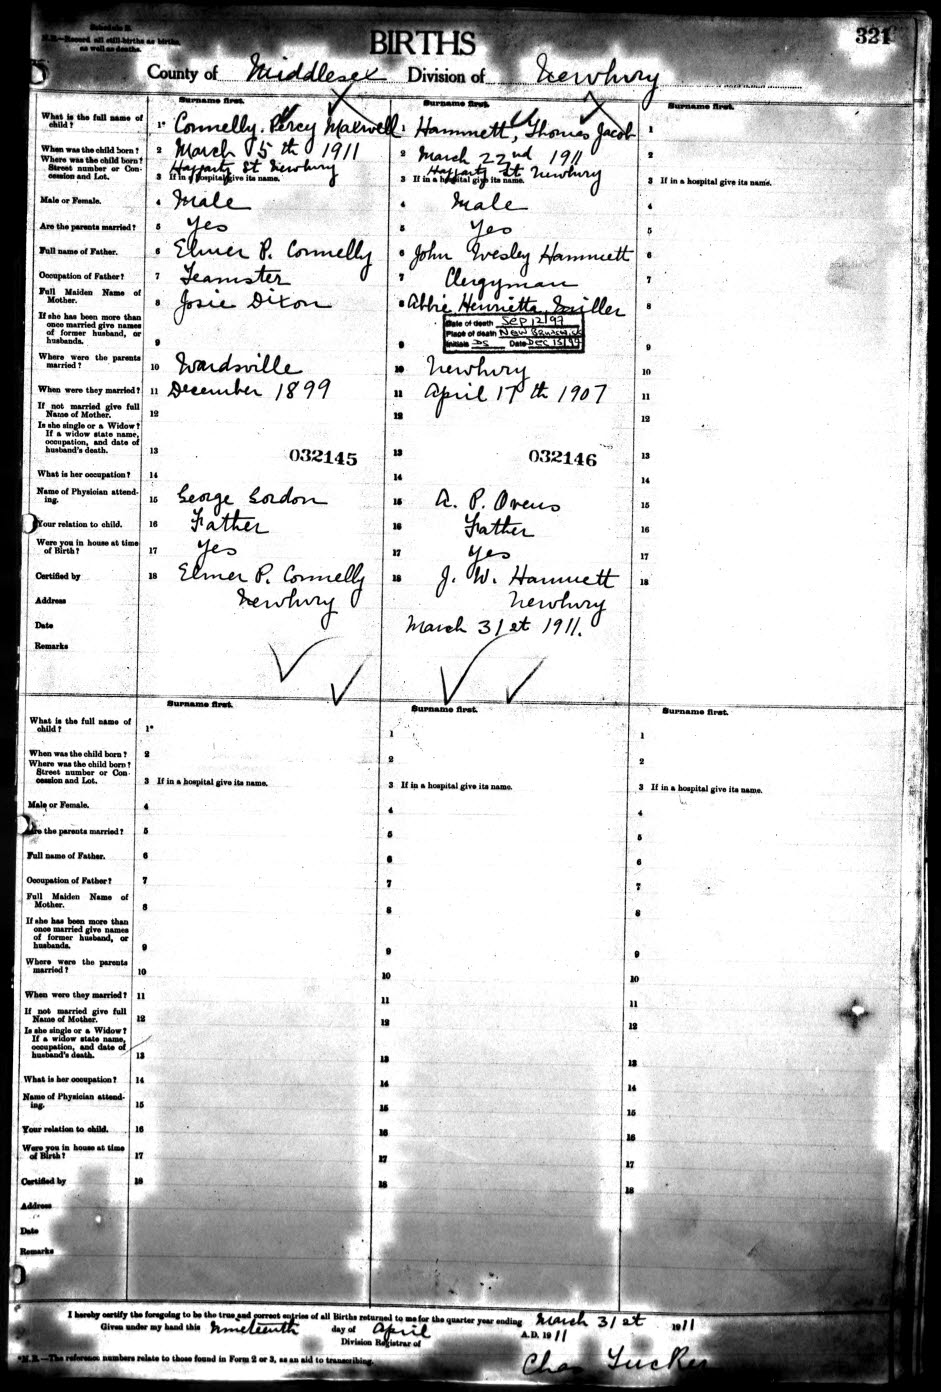 Schedule B.
N.B.—Record all still-births as births,
as well as deaths.
BIRTHS
321
County of Middlesex Division of Newbury
Surname first. Surname first. Surname first.
What is the full name of child? 1* Connelly, Percy Maxwell 1 Hammett, Thomas Jacob 1
When was the child born? 2 March 5th 1911 2 March 22nd 1911 2
Where was the child born?
Street number or Con-
cession and Lot. 3 If in a hospital give its name. Haggarty St Newbury 3 If in a hospital give its name. Haggarty St Newbury 3 If in a hospital give its name.
Male or Female. 4 Male 4 Male 4
Are the parents married? 5 Yes 5 Yes 5
Full name of Father. 6 Elmer P. Connelly 6 John Wesley Hammett 6
Occupation of Father? 7 Teamster 7 Clergyman 7
Full Maiden Name of Mother. 8 Josie Dixon 8 Abbie Henrietta Miller 8
If she has been more than
once married give names
of former husband, or
husbands. 9 9 9
Date of death Sep 12/97
Place of death New Brunswick
Initials DS Date Dec 15/97
Where were the parents married? 10 Wardsville 10 Newbury 10
When were they married? 11 December 1899 11 April 17th 1907 11
If not married give full Name of Mother. 12 12 12
Is she single or a Widow?
If a widow state name,
occupation, and date of
husband's death. 13 032145 13 032146 13
What is her occupation? 14 14 14
Name of Physician attend-
ing. 15 George Gordon 15 A. P. Owens 15
Your relation to child. 16 Father 16 Father 16
Were you in house at time of Birth? 17 Yes 17 Yes 17
Certified by 18 Elmer P. Connelly 18 J. W. Hammett 18
Address Newbury Newbury
Date March 31st 1911.
Remarks
Surname first. Surname first. Surname first.
What is the full name of child? 1* 1 1
When was the child born? 2 2 2
Where was the child born?
Street number or Con-
cession and Lot. 3 If in a hospital give its name. 3 If in a hospital give its name. 3 If in a hospital give its name.
Male or Female. 4 4 4
Are the parents married? 5 5 5
Full name of Father. 6 6 6
Occupation of Father? 7 7 7
Full Maiden Name of Mother. 8 8 8
If she has been more than
once married give names
of former husband, or
husbands. 9 9 9
Where were the parents married? 10 10 10
When were they married? 11 11 11
If not married give full Name of Mother. 12 12 12
Is she single or a Widow?
If a widow state name,
occupation, and date of
husband's death. 13 13 13
What is her occupation? 14 14 14
Name of Physician attend-
ing. 15 15 15
Your relation to child. 16 16 16
Were you in house at time of Birth? 17 17 17
Certified by 18 18 18
Address
Date
Remarks
I hereby certify the foregoing to be the true and correct entries of all Births returned to me for the quarter year ending March 31st 1911
Given under my hand this Nineteenth day of April A.D. 1911
Division Registrar of
Chas Tucker
*N.B.—The reference numbers relate to those found in Form 2 or 3, as an aid to transcribing.